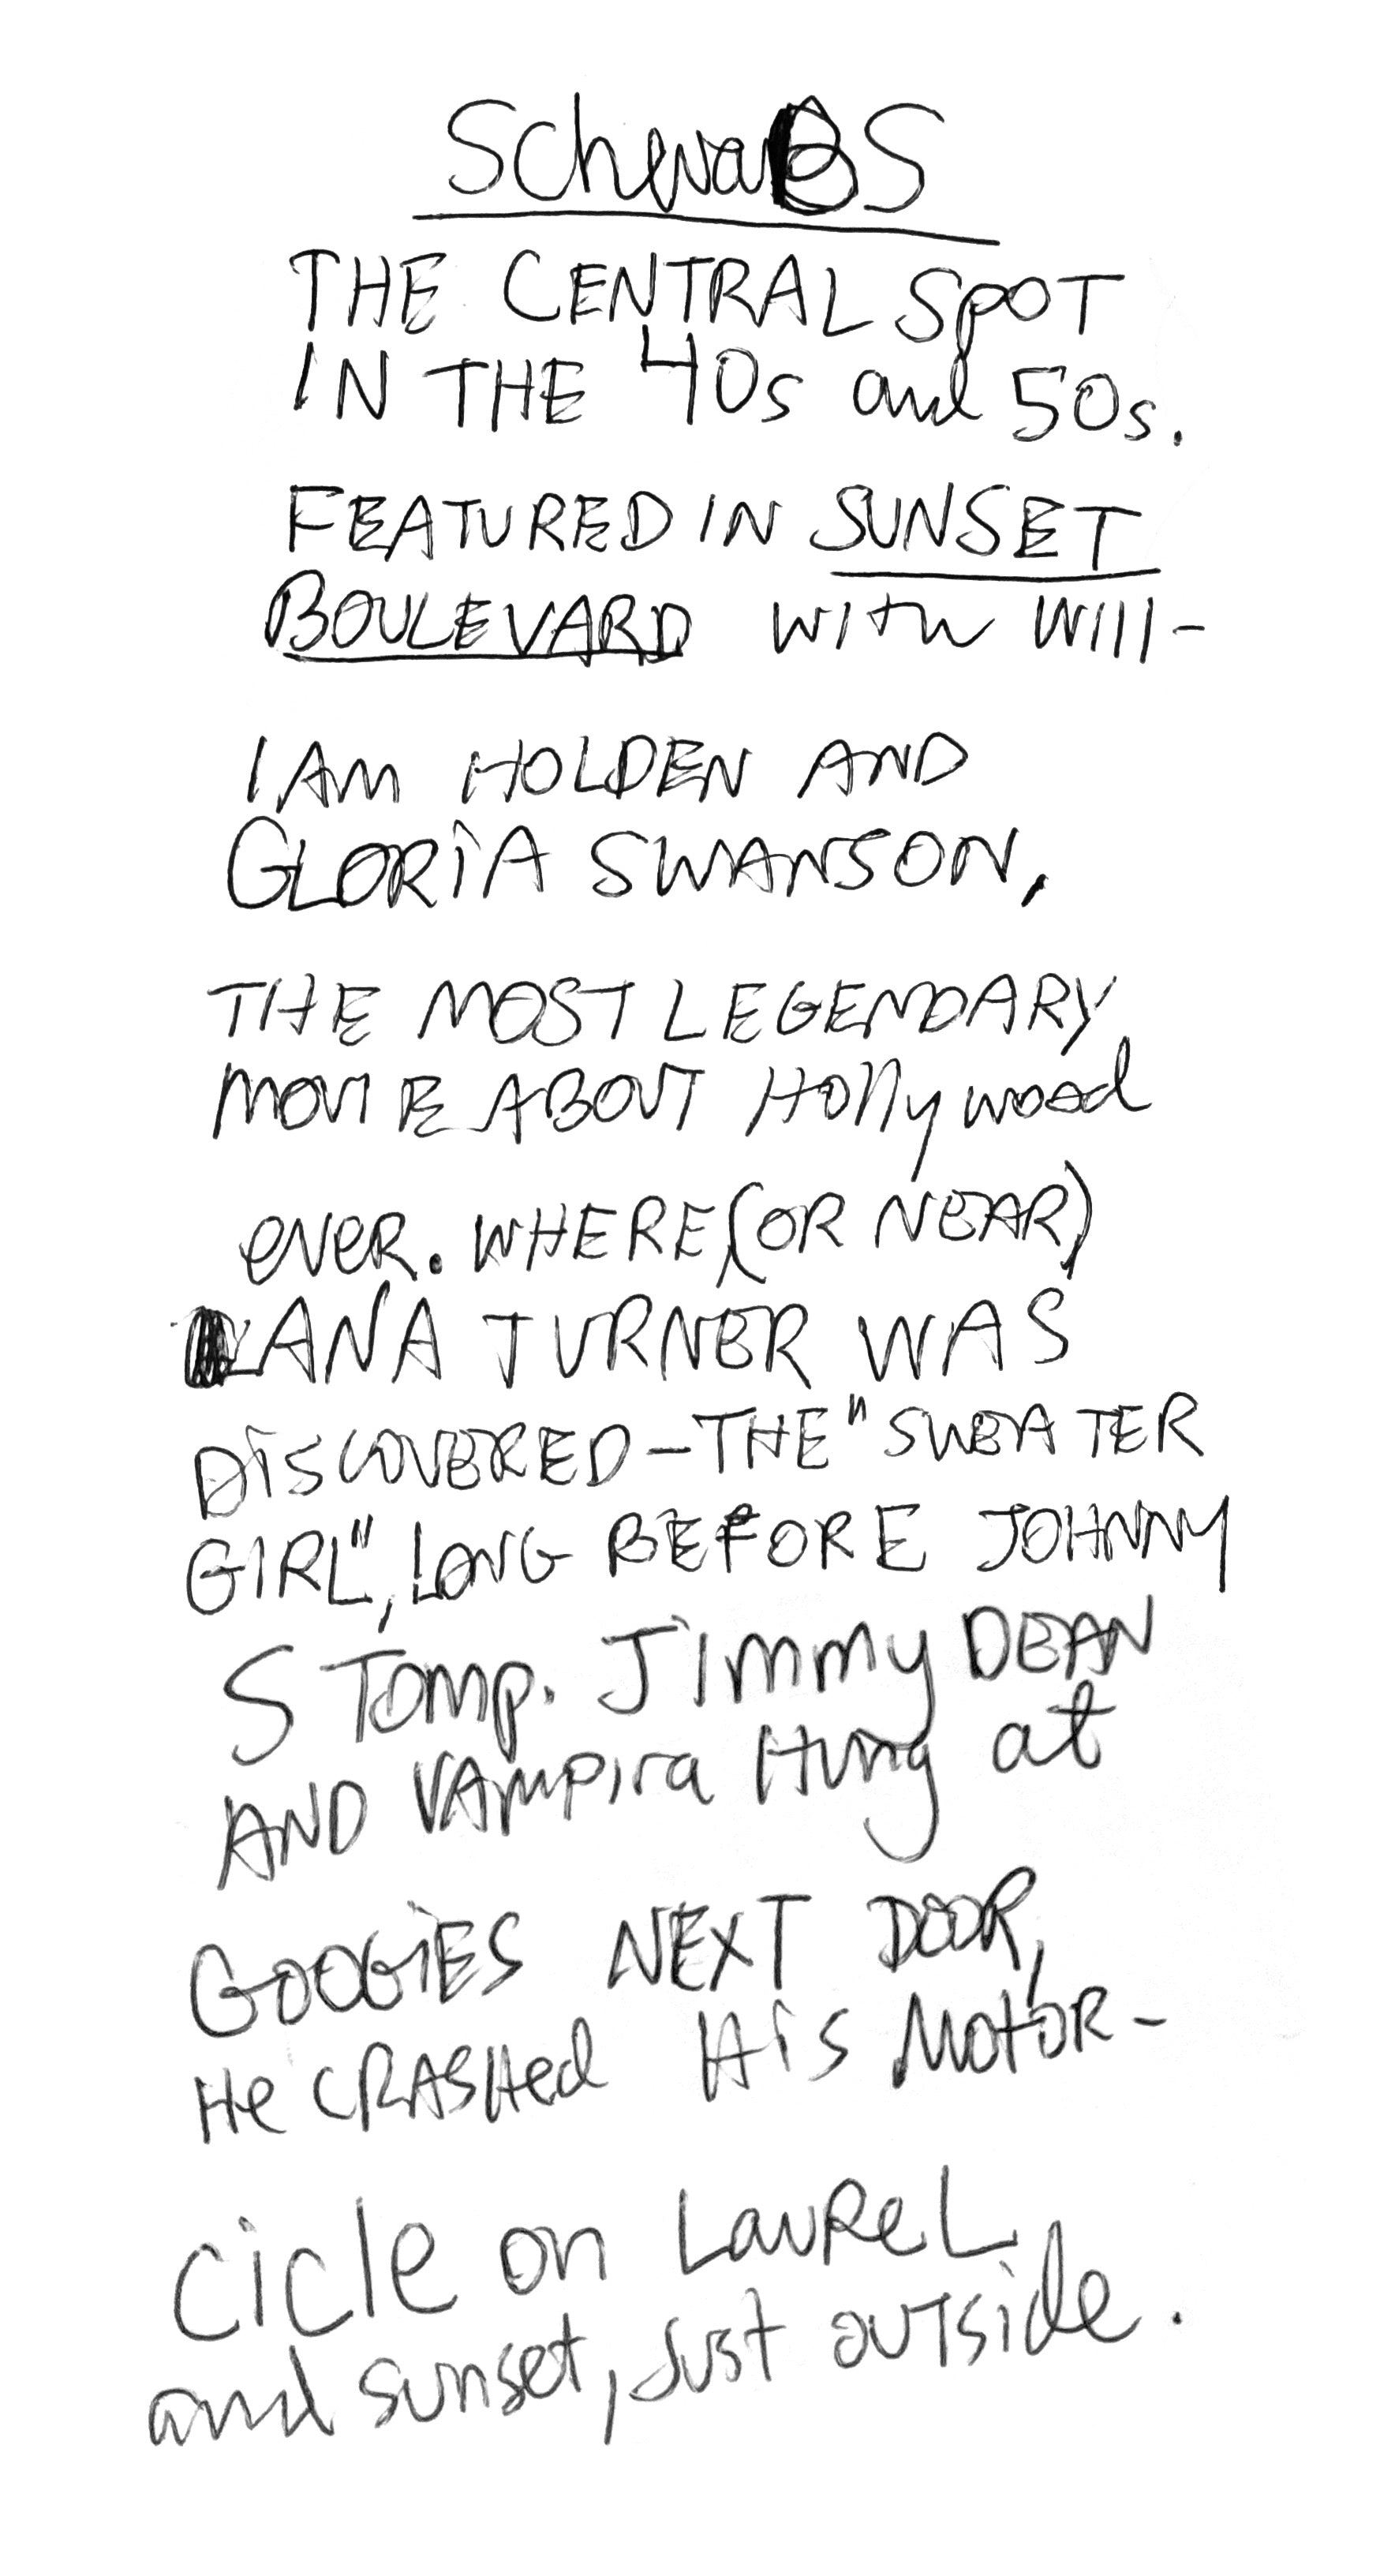 SchwaBS
THE CENTRAL SpOT
IN THE 40s and 50s.
FEATURED IN SUNSET
BOULEVARD WITH WIll-
IAM HOLDEN AND
GLORiA SWANSON,
THE MOST LEGENDARY
MOVIE ABOUT Hollywood
eveR. WHERE (OR NEAR)
LANA TURNER WAS
DiSCOVERED-THE "SWEATER
GIRL", LONG BEFORE JOHNNY
STomp. Jimmy DEAN
AND VAmpira Hung at
GOOGiES NEXT DOOR,
He CRASHed HiS MOTOR-
cicle on LauReL
and sunset, Just outside.